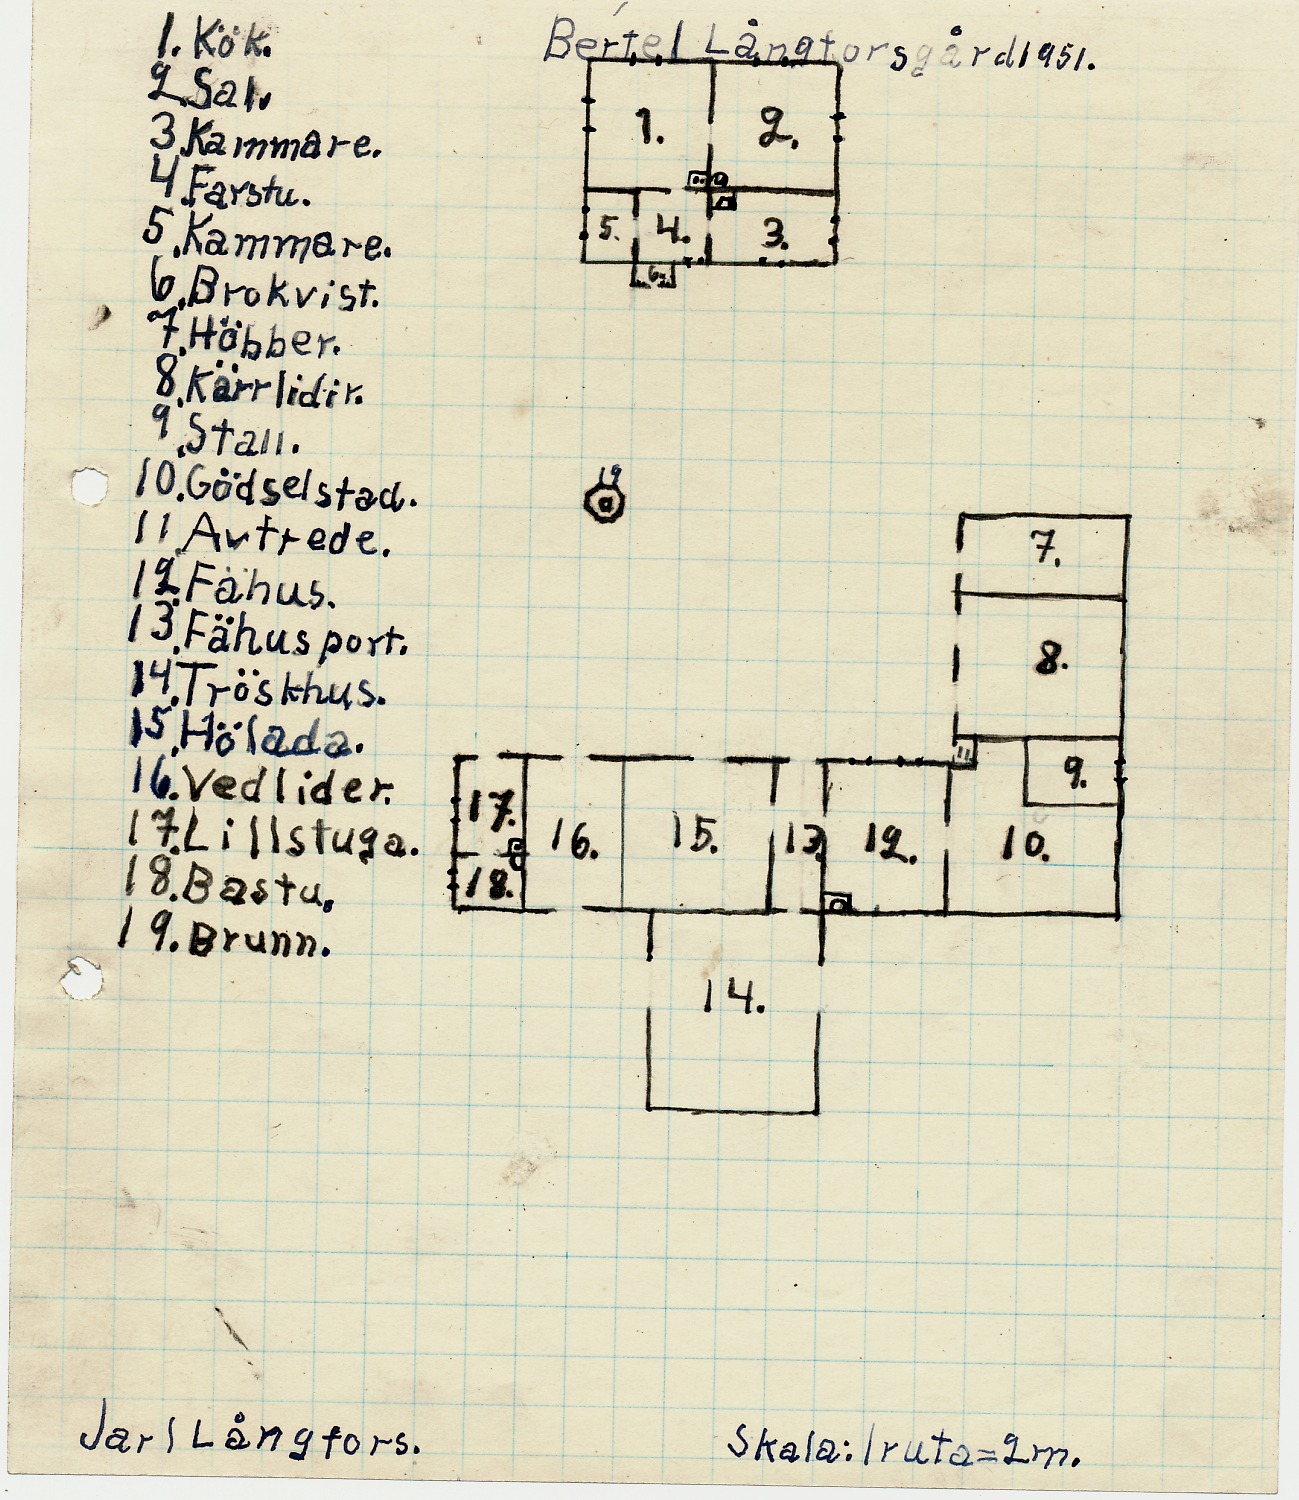 Bertel Långforsgård 1951.
1. Kök.
2. Sal.
3. Kammare.
4. Farstu.
5. Kammare.
6. Brokvist.
7. Höbber.
8. Kärrlidir.
9. Stall.
10. Gödselstad.
11. Avtrede.
12. Fähus.
13. Fähusport.
14. Tröskhus.
15. Hölada.
16. Vedlider.
17. Lillstuga.
18. Bastu.
19. Brunn.
1. 2.
5. 4. 3.
6.
19
7.
8.
11
9.
17. 16. 15. 13. 12. 10.
18.
14.
Jarl Långfors.
Skala: 1 ruta = 2m.